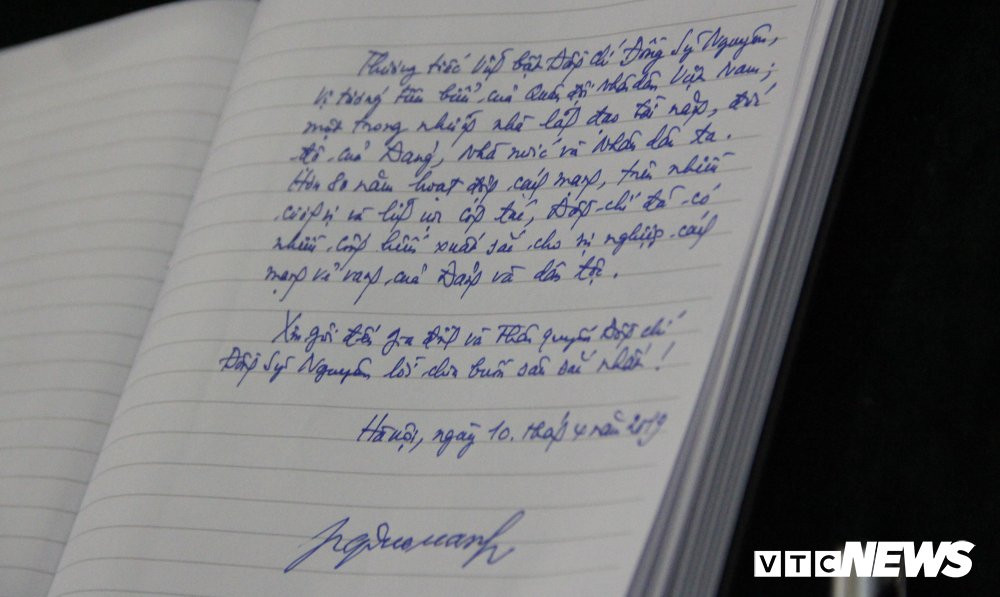 Thương tiếc Vĩnh biệt Đồng chí Đồng Sỹ Nguyên,
Vị tướng tiêu biểu của Quân đội Nhân dân Việt Nam;
một trong những nhà lãnh đạo tài năng, đức
độ của Đảng, Nhà nước và Nhân dân ta.
Hơn 80 năm hoạt động cách mạng, trên nhiều
cương vị và lĩnh vực công tác, Đồng chí đã có
nhiều cống hiến xuất sắc cho sự nghiệp cách
mạng vẻ vang của Đảng và dân tộc.
Xin gửi đến gia đình và Thân quyến Đồng chí
Đồng Sỹ Nguyên lời chia buồn sâu sắc nhất!
Hà nội, ngày 10 tháng 4 năm 2019
VTC NEWS